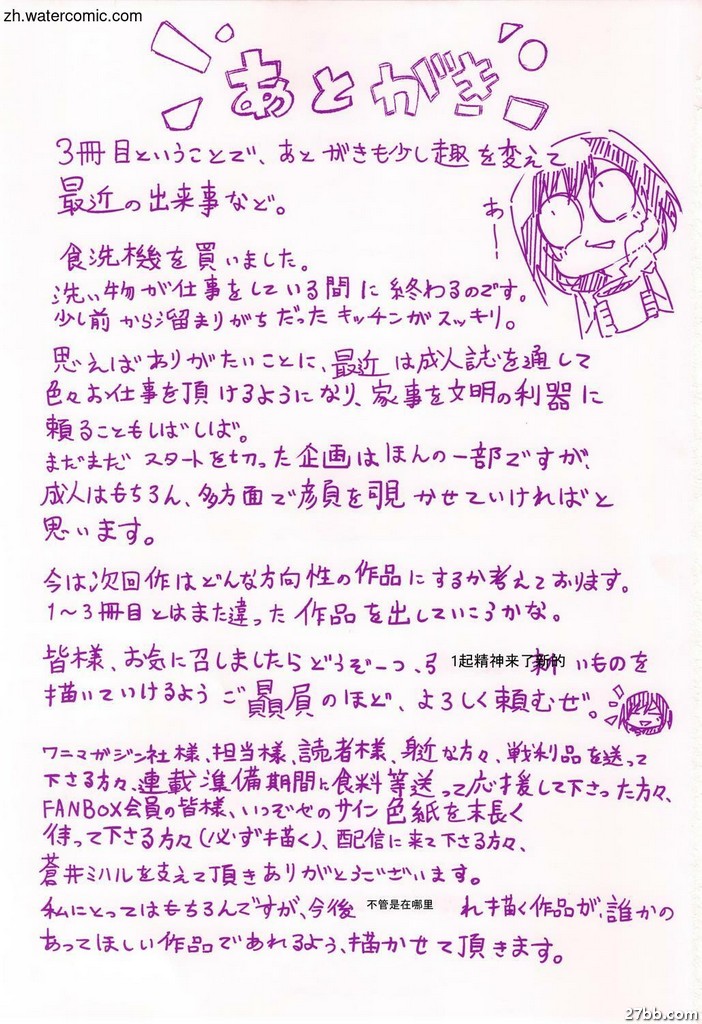 zh.watercomic.com
あとがき
3冊目ということで、あとがきも少し趣を変えて
最近の出来事など。
あー
食洗機を買いました。
洗い物が仕事をしている間に終わるのです。
少し前から溜まりがちだったキッチンがスッキリ。
思えばありがたいことに、最近は成人誌を通して
色々お仕事を頂けるようになり、家事を文明の利器に
頼ることもしばしば。
まだまだスタートを切った企画はほんの一部ですが、
成人はもちろん、多方面で顔を覗かせていければと
思います。
今は次回作はどんな方向性の作品にするか考えております。
1〜3冊目とはまた違った作品を出していこうかな。
皆様、お気に召しましたらどうぞ一つ、引 1起精神来了新的 いものを
描いていけるようご贔屓のほど、よろしく頼むぜ。
ワニマガジン社様、担当様、読者様、身近な方々、戦利品を送って
下さる方々、連載準備期間に食料等送って応援して下さった方々、
FANBOX会員の皆様、いつぞやのサイン色紙を末長く
待って下さる方々(必ず描く)、配信に来て下さる方々、
蒼井ミハルを支えて頂きありがとうございます。
私にとってはもちろんですが、今後 不管是在哪里 れ描く作品が、誰かの
あってほしい作品であれるよう、描かせて頂きます。
27bb.com